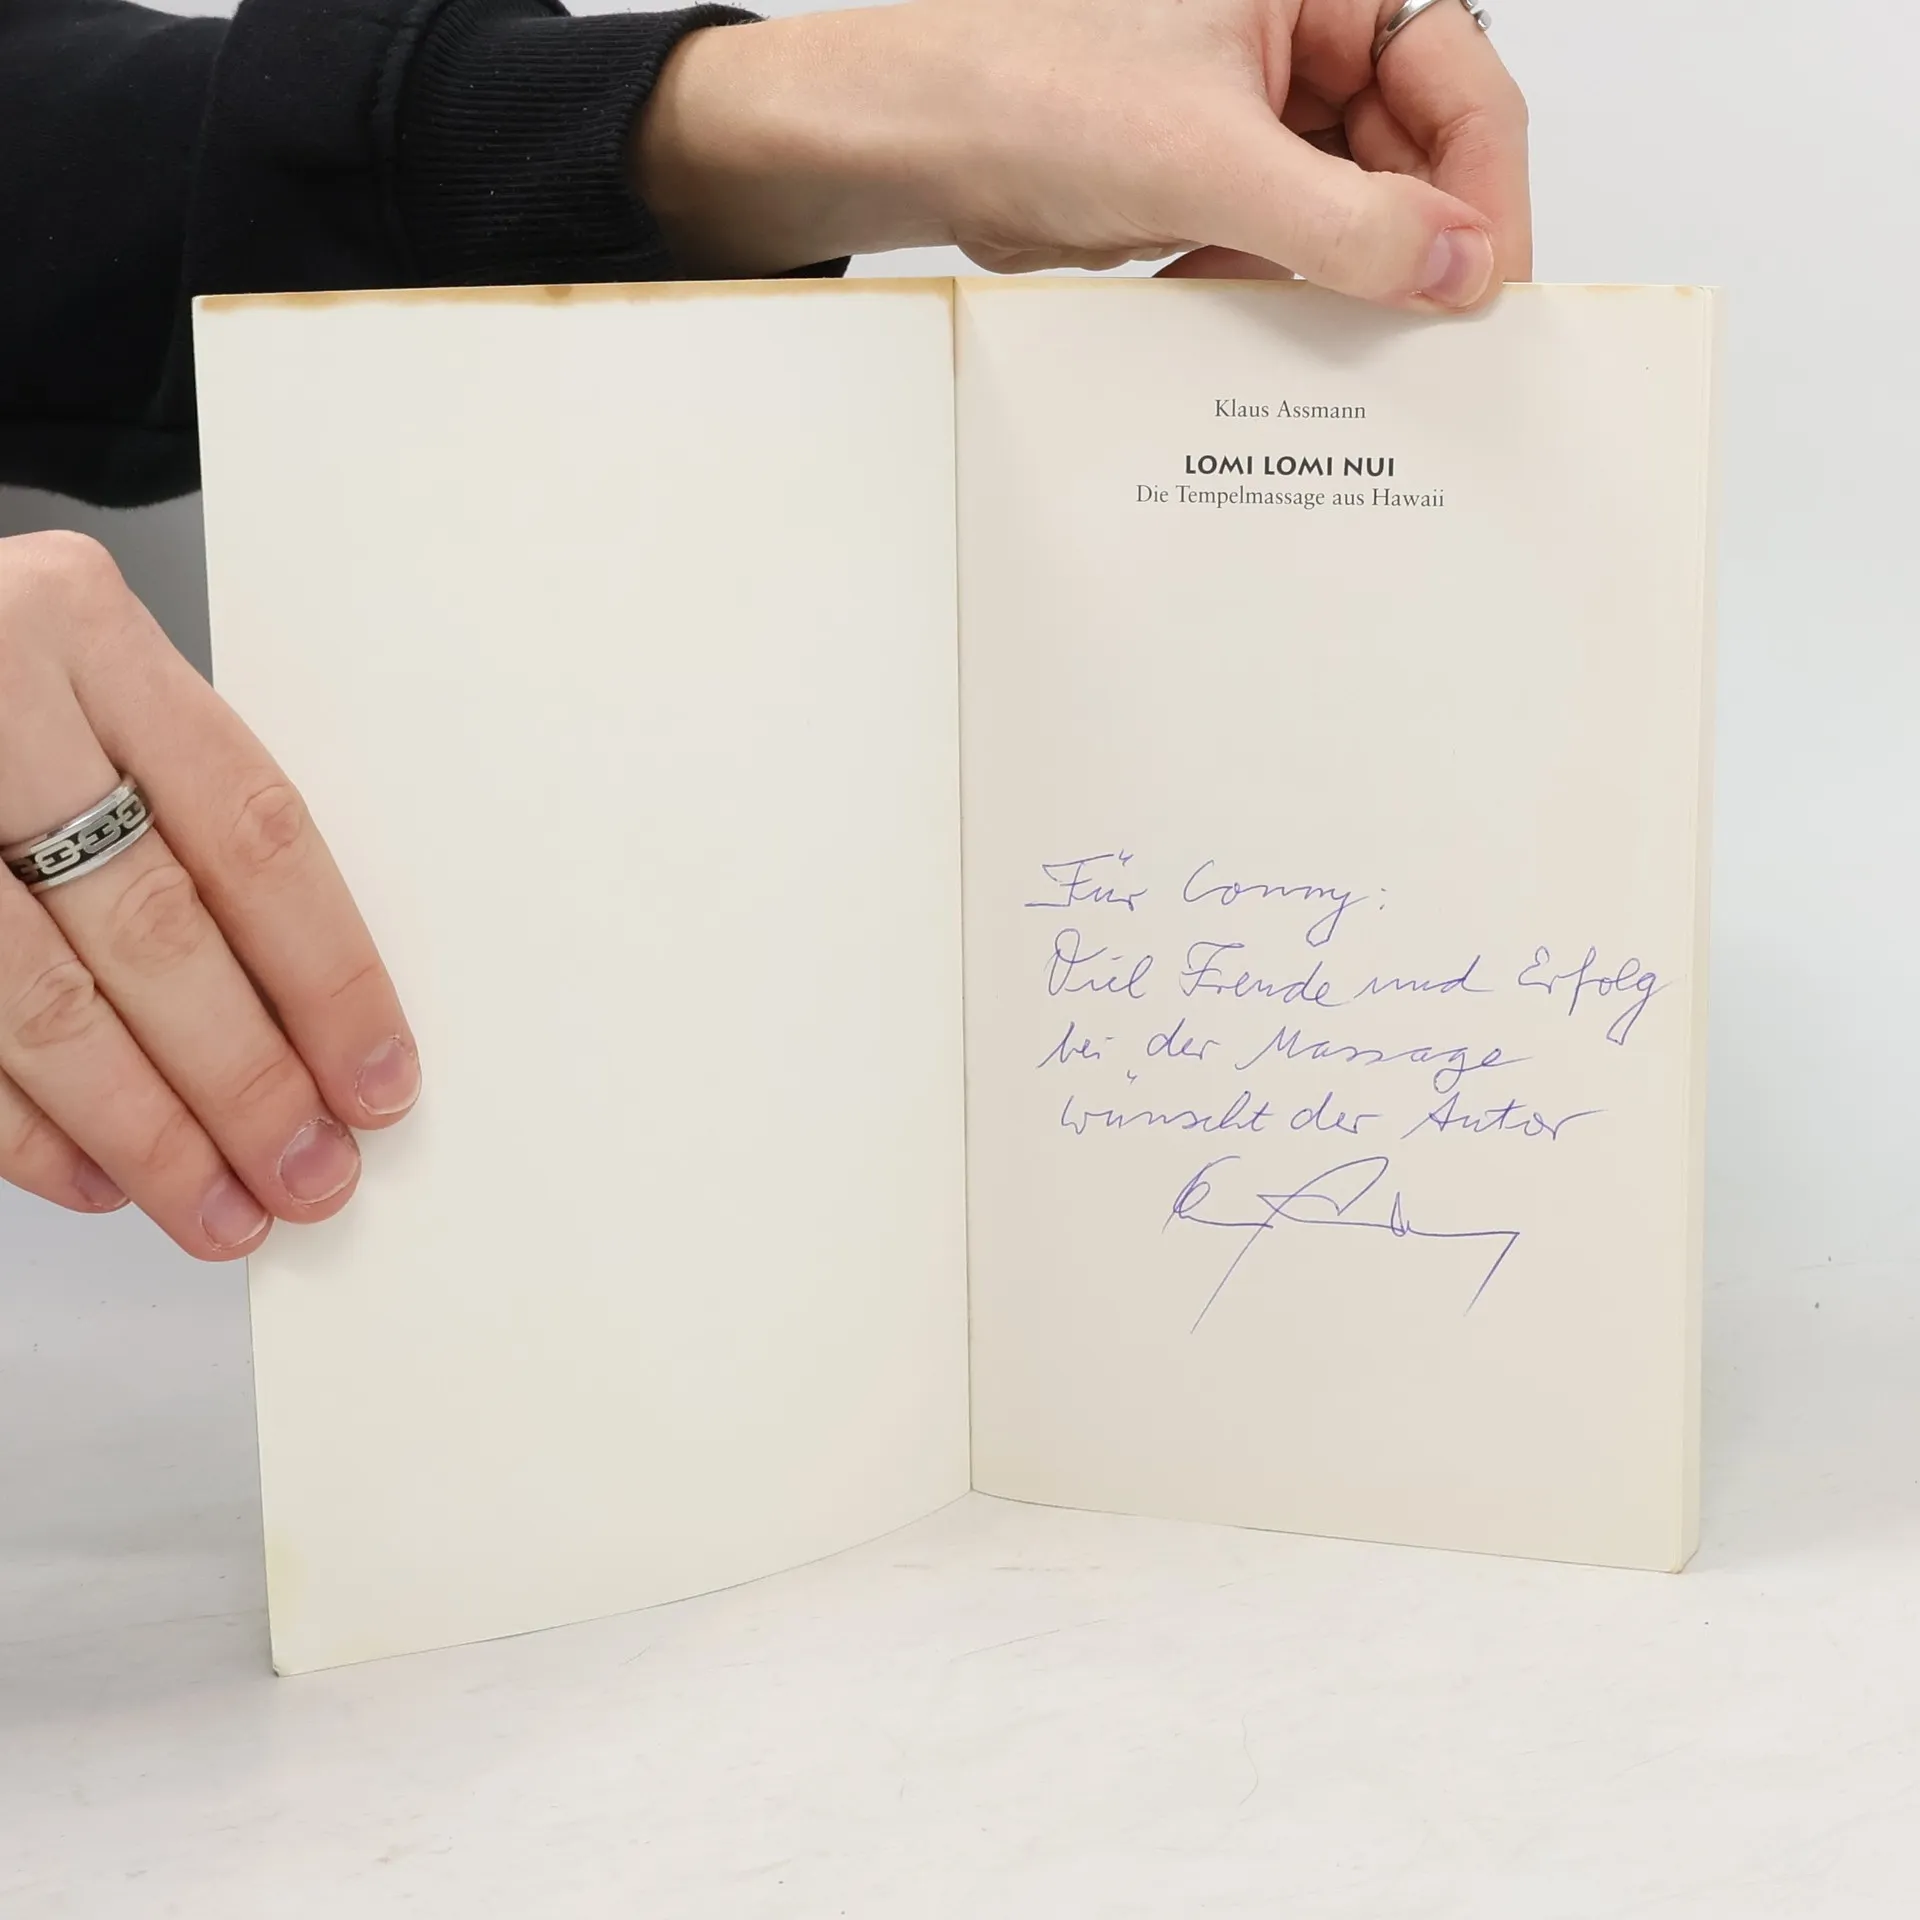 Klaus Assmann
LOMI LOMI NUI
Die Tempelmassage aus Hawaii
Für Conny:
Viel Freude und Erfolg
bei der Massage
wünscht der Autor